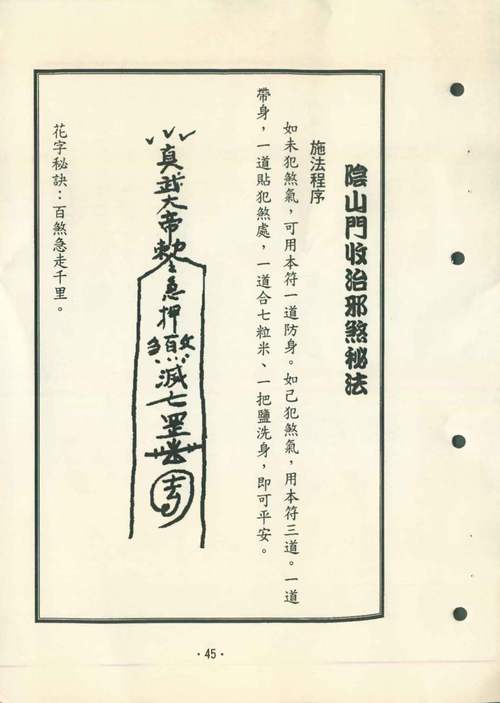 陰山門收治邪煞秘法
施法程序
如未犯煞氣，可用本符一道防身。如己犯煞氣，用本符三道。一道
帶身，一道貼犯煞處，一道合七粒米、一把鹽洗身，即可平安。
真武大帝勅令
急押煞滅七罡
花字秘訣：百煞急走千里。
·45·